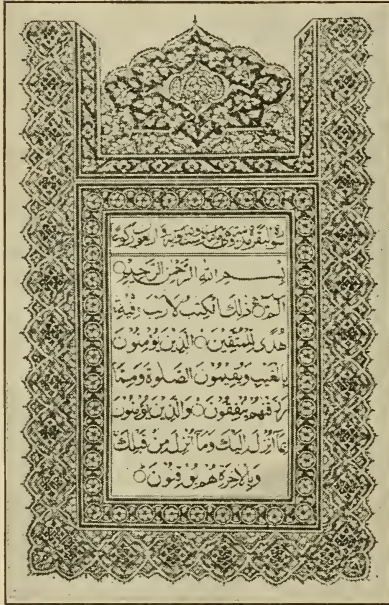 سورة البقرة مدنية وهي مائتان و
بسم الله الرحمن الرحيم
الم ذلك الكتب لا ريب فيه
هدى للمتقين الذين يؤمنون
بالغيب ويقيمون الصلوة ومما
رزقنهم ينفقون والذين يؤمنون
بما أنزل إليك وما أنزل من قبلك
وبالآخرة هم يوقنون